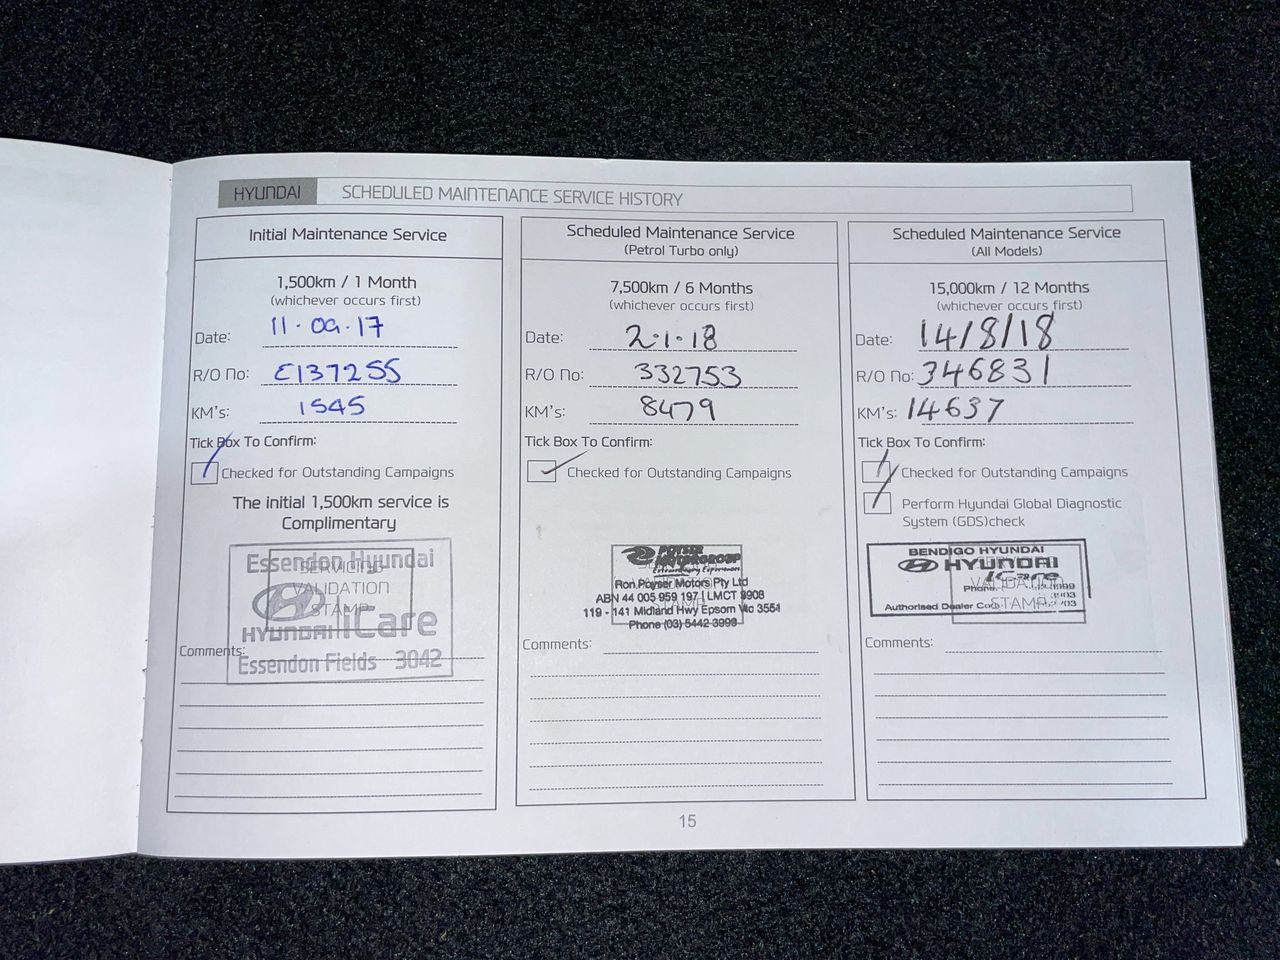 HYUNDAI SCHEDULED MAINTENANCE SERVICE HISTORY
Initial Maintenance Service
1,500km / 1 Month
(whichever occurs first)
Date: 11·09·17
R/O No: E137255
KM's: 1545
Tick Box To Confirm:
Checked for Outstanding Campaigns
The initial 1,500km service is
Complimentary
Essendon Hyundai
SERVICING
VALIDATION
STAMP
HYUNDAI iCare
Essendon Fields 3042
Comments:
Scheduled Maintenance Service
(Petrol Turbo only)
7,500km / 6 Months
(whichever occurs first)
Date: 2·1·18
R/O No: 332753
KM's: 8479
Tick Box To Confirm:
Checked for Outstanding Campaigns
POYSER
MOTORGROUP
Ron Poyser Motors Pty Ltd
ABN 44 005 959 197 LMCT 9908
119 - 141 Midland Hwy Epsom Vic 3551
Phone (03) 5442 3999
Comments:
Scheduled Maintenance Service
(All Models)
15,000km / 12 Months
(whichever occurs first)
Date: 14/8/18
R/O No: 346831
KM's: 14637
Tick Box To Confirm:
Checked for Outstanding Campaigns
Perform Hyundai Global Diagnostic
System (GDS)check
BENDIGO HYUNDAI
HYUNDAI
iCare
VALIDATION
STAMP
Phone:
Authorised Dealer
Comments:
15